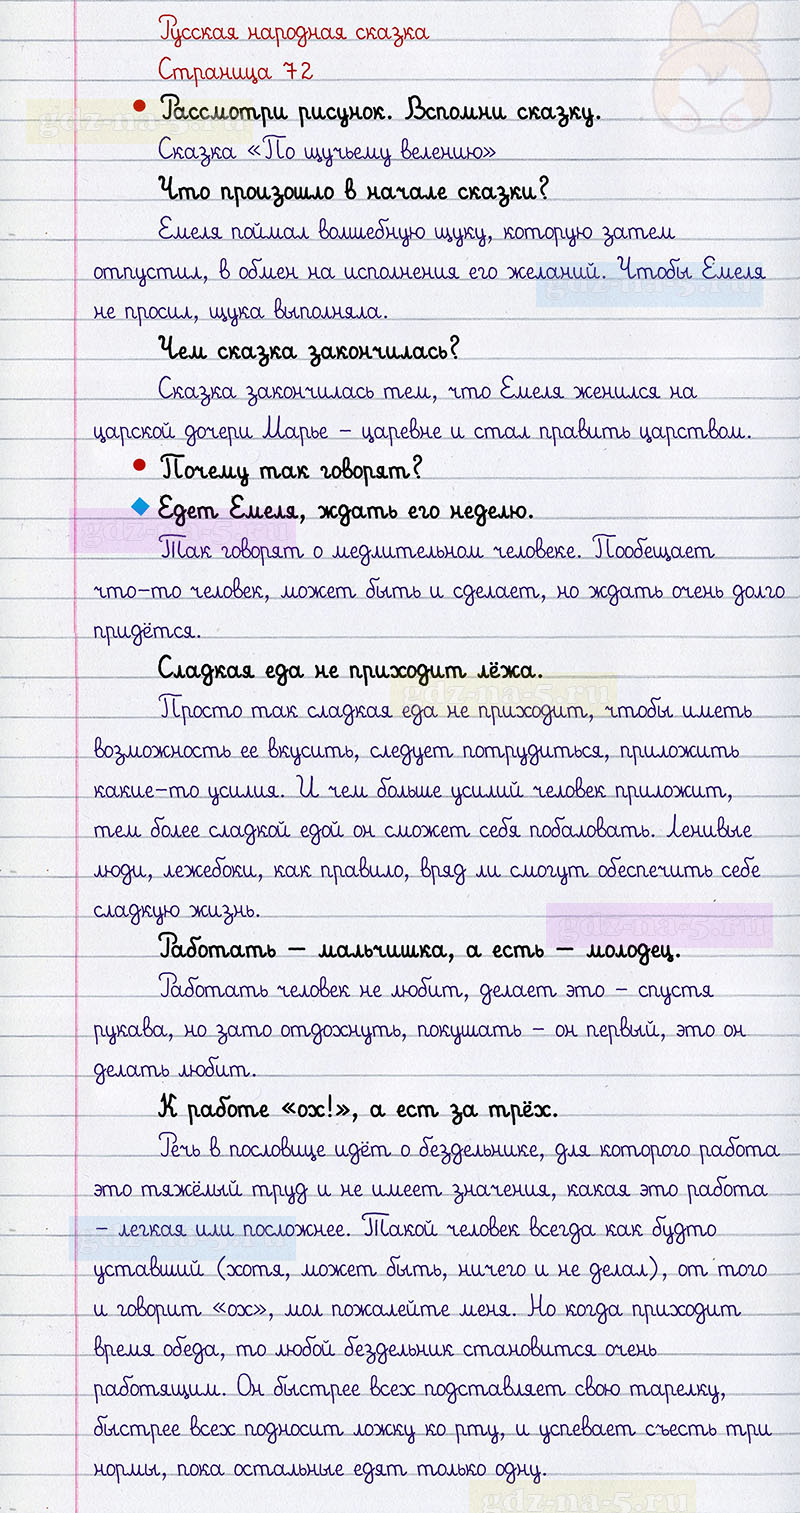 Русская народная сказка
Страница 72
• Рассмотри рисунок. Вспомни сказку.
gdz-na-5.ru
Сказка «По щучьему велению»
Что произошло в начале сказки?
Емеля поймал волшебную щуку, которую затем
отпустил, в обмен на исполнения его желаний. Чтобы Емеля
gdz-na-5.ru
не просил, щука выполняла.
Чем сказка закончилась?
Сказка закончилась тем, что Емеля женился на
царской дочери Марье – царевне и стал править царством.
• Почему так говорят?
◆ Едет Емеля, ждать его неделю.
gdz-na-5.ru
Так говорят о медлительном человеке. Пообещает
что-то человек, может быть и сделает, но ждать очень долго
придётся.
Сладкая еда не приходит лёжа.
gdz-na-5.ru
Просто так сладкая еда не приходит, чтобы иметь
возможность ее вкусить, следует потрудиться, приложить
какие-то усилия. И чем больше усилий человек приложит,
тем более сладкой едой он сможет себя побаловать. Ленивые
люди, лежебоки, как правило, вряд ли смогут обеспечить себе
сладкую жизнь.
gdz-na-5.ru
Работать – мальчишка, а есть – молодец.
Работать человек не любит, делает это – спустя
рукава, но зато отдохнуть, покушать – он первый, это он
делать любит.
К работе «ох!», а ест за трёх.
Речь в пословице идёт о бездельнике, для которого работа
это тяжёлый труд и не имеет значения, какая это работа
– легкая или посложнее. Такой человек всегда как будто
gdz-na-5.ru
уставший (хотя, может быть, ничего и не делал), от того
и говорит «ох», мол пожалейте меня. Но когда приходит
время обеда, то любой бездельник становится очень
работящим. Он быстрее всех подставляет свою тарелку,
быстрее всех подносит ложку ко рту, и успевает съесть три
нормы, пока остальные едят только одну.
gdz-na-5.ru